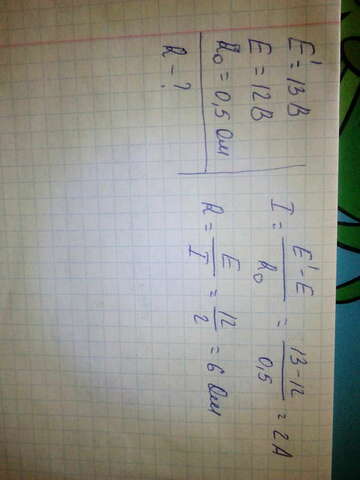 E' = 13 В
E = 12 В
R₀ = 0,5 Ом
R - ?
I = (E' - E) / R₀ = (13 - 12) / 0,5 = 2 А
R = E / I = 12 / 2 = 6 Ом